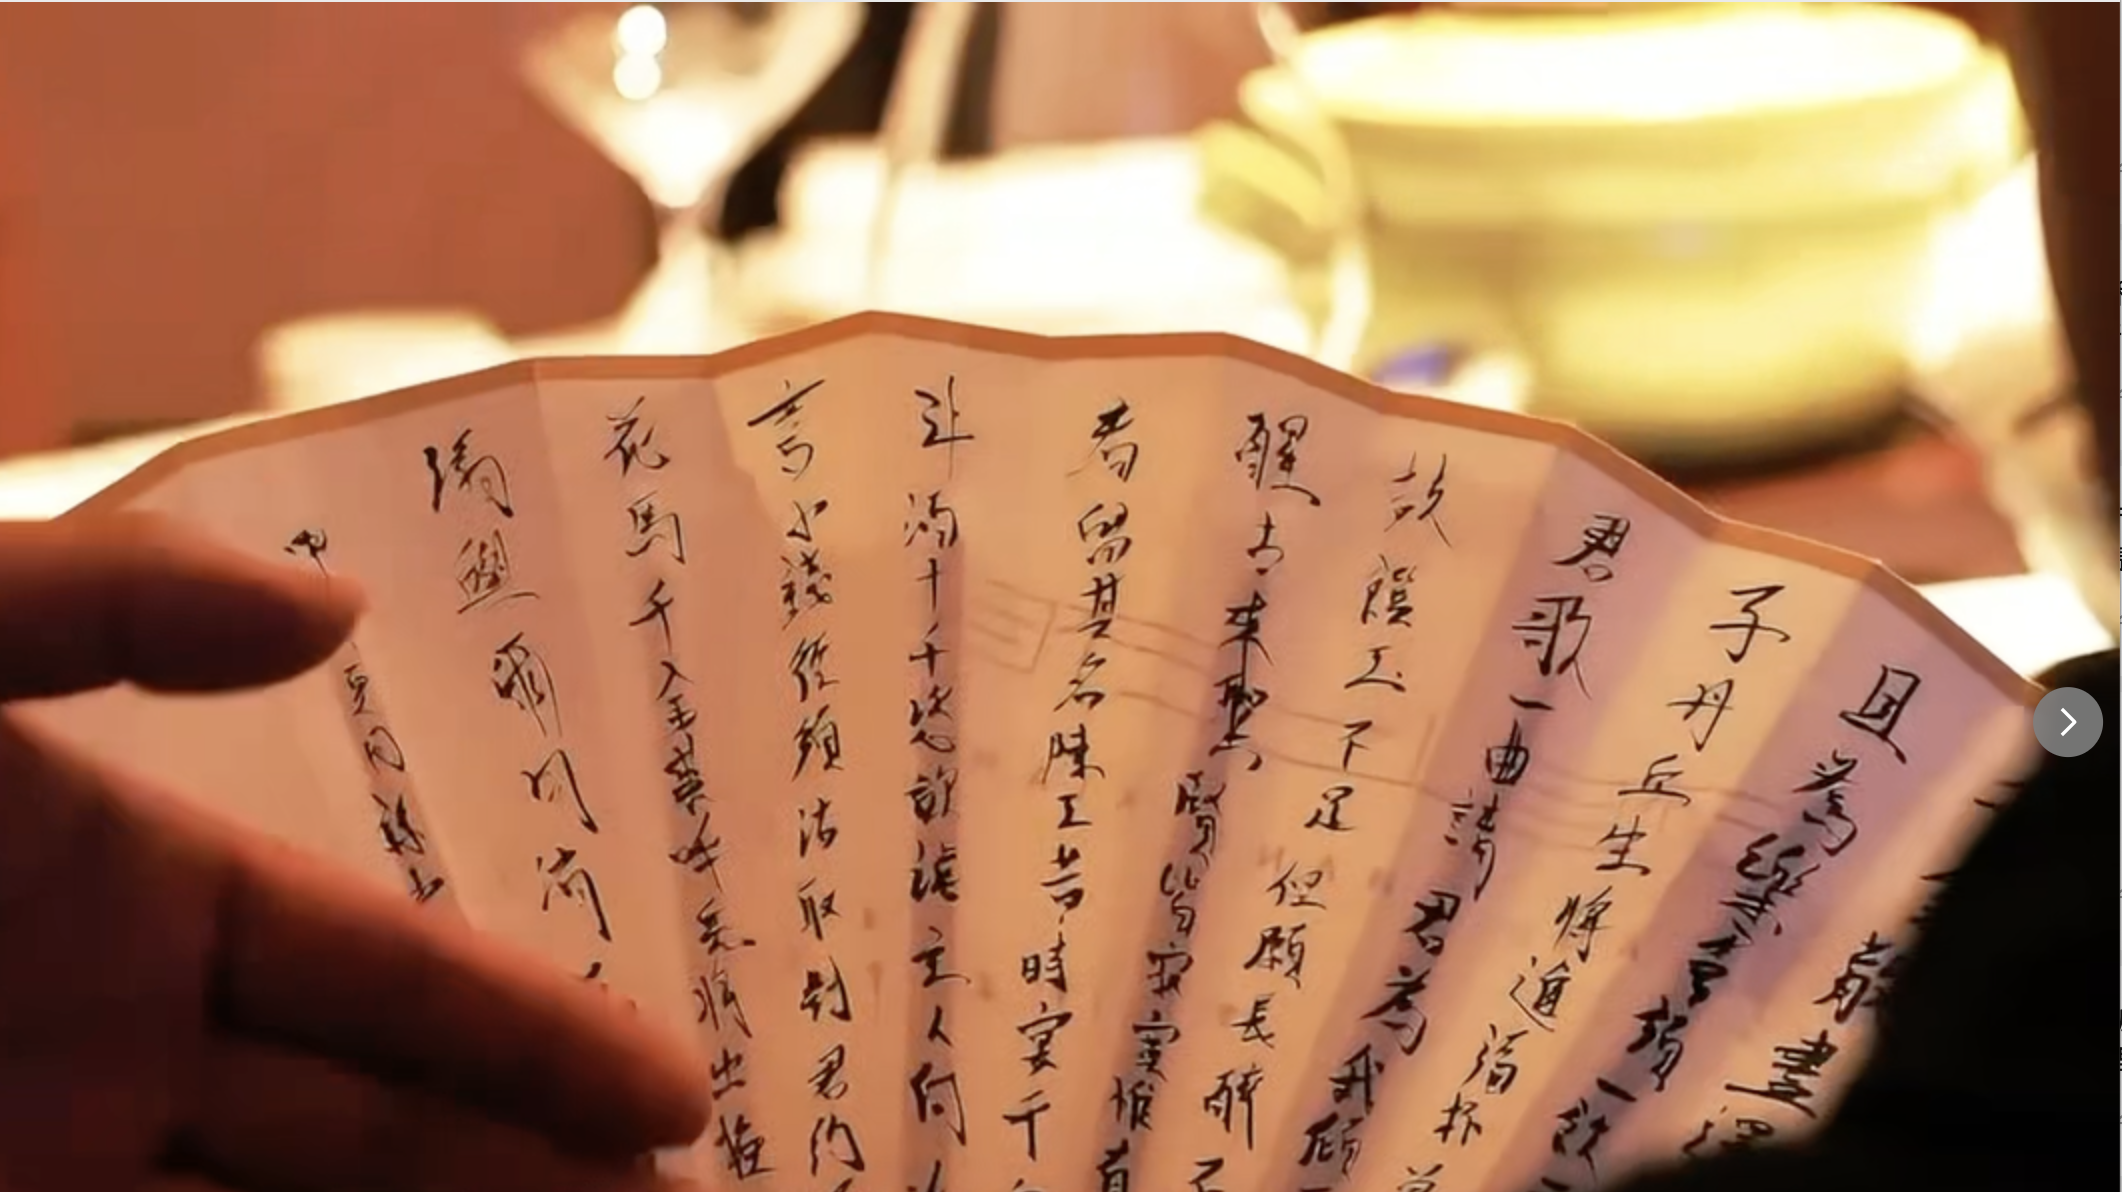 散盡還
且為樂會須一飲
子丹丘生將進酒杯莫
君歌一曲請君為我傾
鼓饌玉不足但願長醉不
醒古來聖賢皆寂寞惟有
者留其名陳王昔時宴平
斗酒十千恣歡謔主人何
言少錢徑須沽取對君酌
花馬千金裘呼兒將出換
酒與爾同消